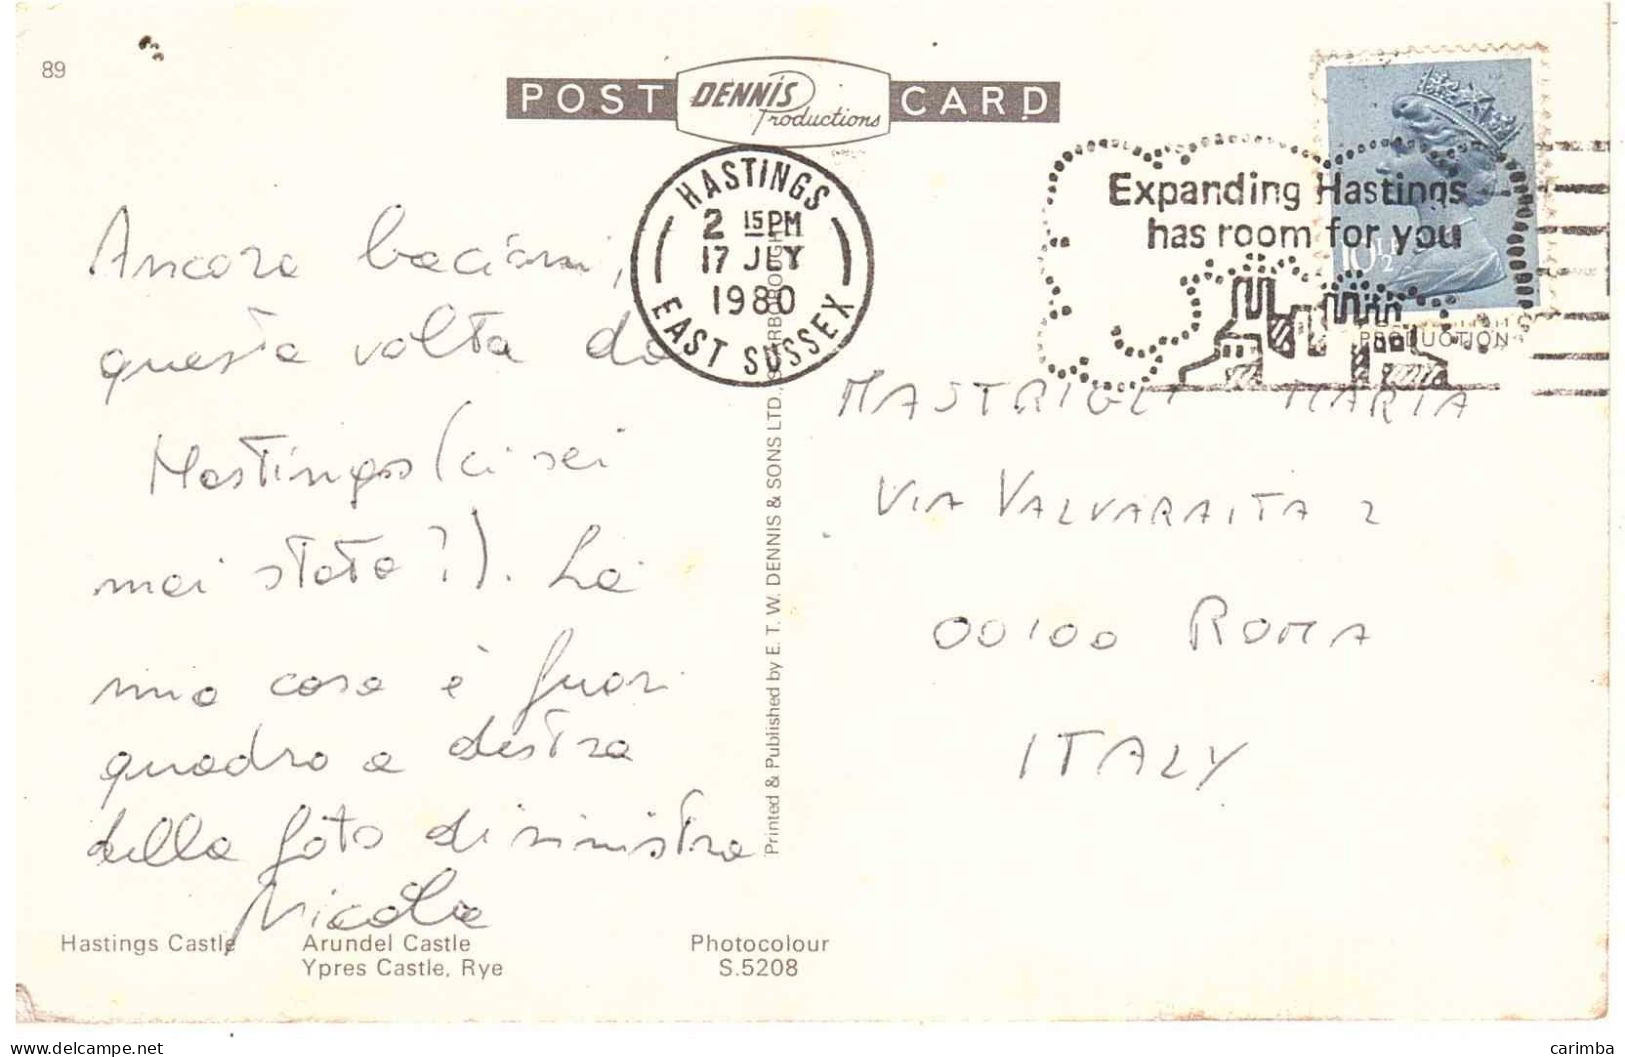 89
POST DENNIS Productions CARD
HASTINGS
2 15 PM
17 JLY
1980
EAST SUSSEX
Expanding Hastings
has room for you
10½P
PRODUCTION
Ancora bacioni,
questa volta da
Hastings (ci sei
mai stata?). La
mia casa è fuori
quadro a destra
della foto di sinistra
Nicola
MASTRIGLI MARIA
VIA VALVARAITA 2
00100 ROMA
ITALY
Printed & Published by E. T. W. DENNIS & SONS LTD. SCARBOROUGH
Hastings Castle Arundel Castle
Ypres Castle, Rye
Photocolour
S.5208
delcampe.net
carimba